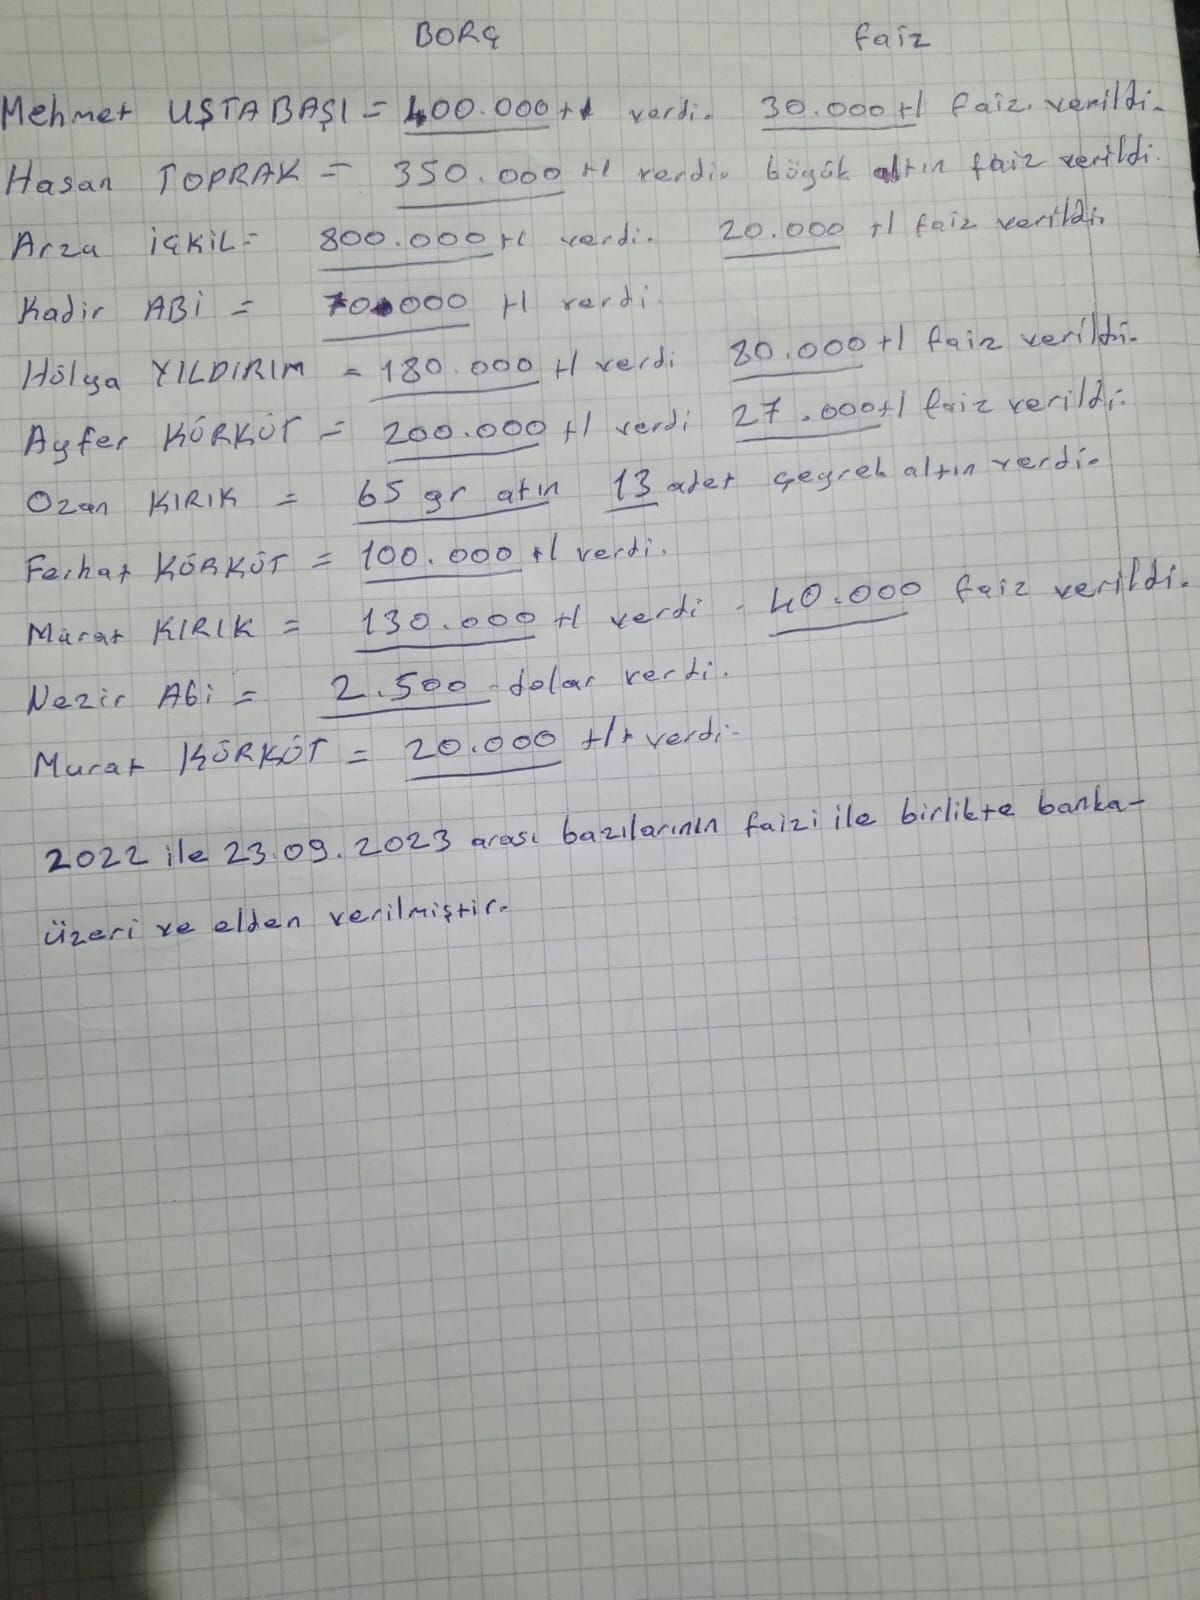 BORÇ faiz
Mehmet USTABAŞI = 400.000 tl verdi. 30.000 tl faiz verildi.
Hasan TOPRAK = 350.000 tl verdi. böyük altın faiz verildi.
Arza İÇKİL = 800.000 tl verdi. 20.000 tl faiz verildi.
Kadir ABİ = 70.000 tl verdi.
Hülya YILDIRIM = 180.000 tl verdi 80.000 tl faiz verildi.
Ayfer KÖRKÖT = 200.000 tl verdi 27.000 tl faiz verildi.
Ozan KIRIK = 65 gr atın 13 adet çeyrek altın verdi.
Ferhat KÖRKÖT = 100.000 tl verdi.
Murat KIRIK = 130.000 tl verdi - 40.000 faiz verildi.
Nezir Abi = 2.500 dolar verdi.
Murat KÖRKÖT = 20.000 tl verdi.
2022 ile 23.09.2023 arası bazılarının faizi ile birlikte banka-
üzeri ve elden verilmiştir.